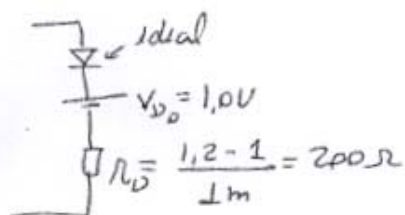 ideal
V_{D_0} = 1,0V
r_D = \frac{1,2 - 1}{1m} = 200 Ω